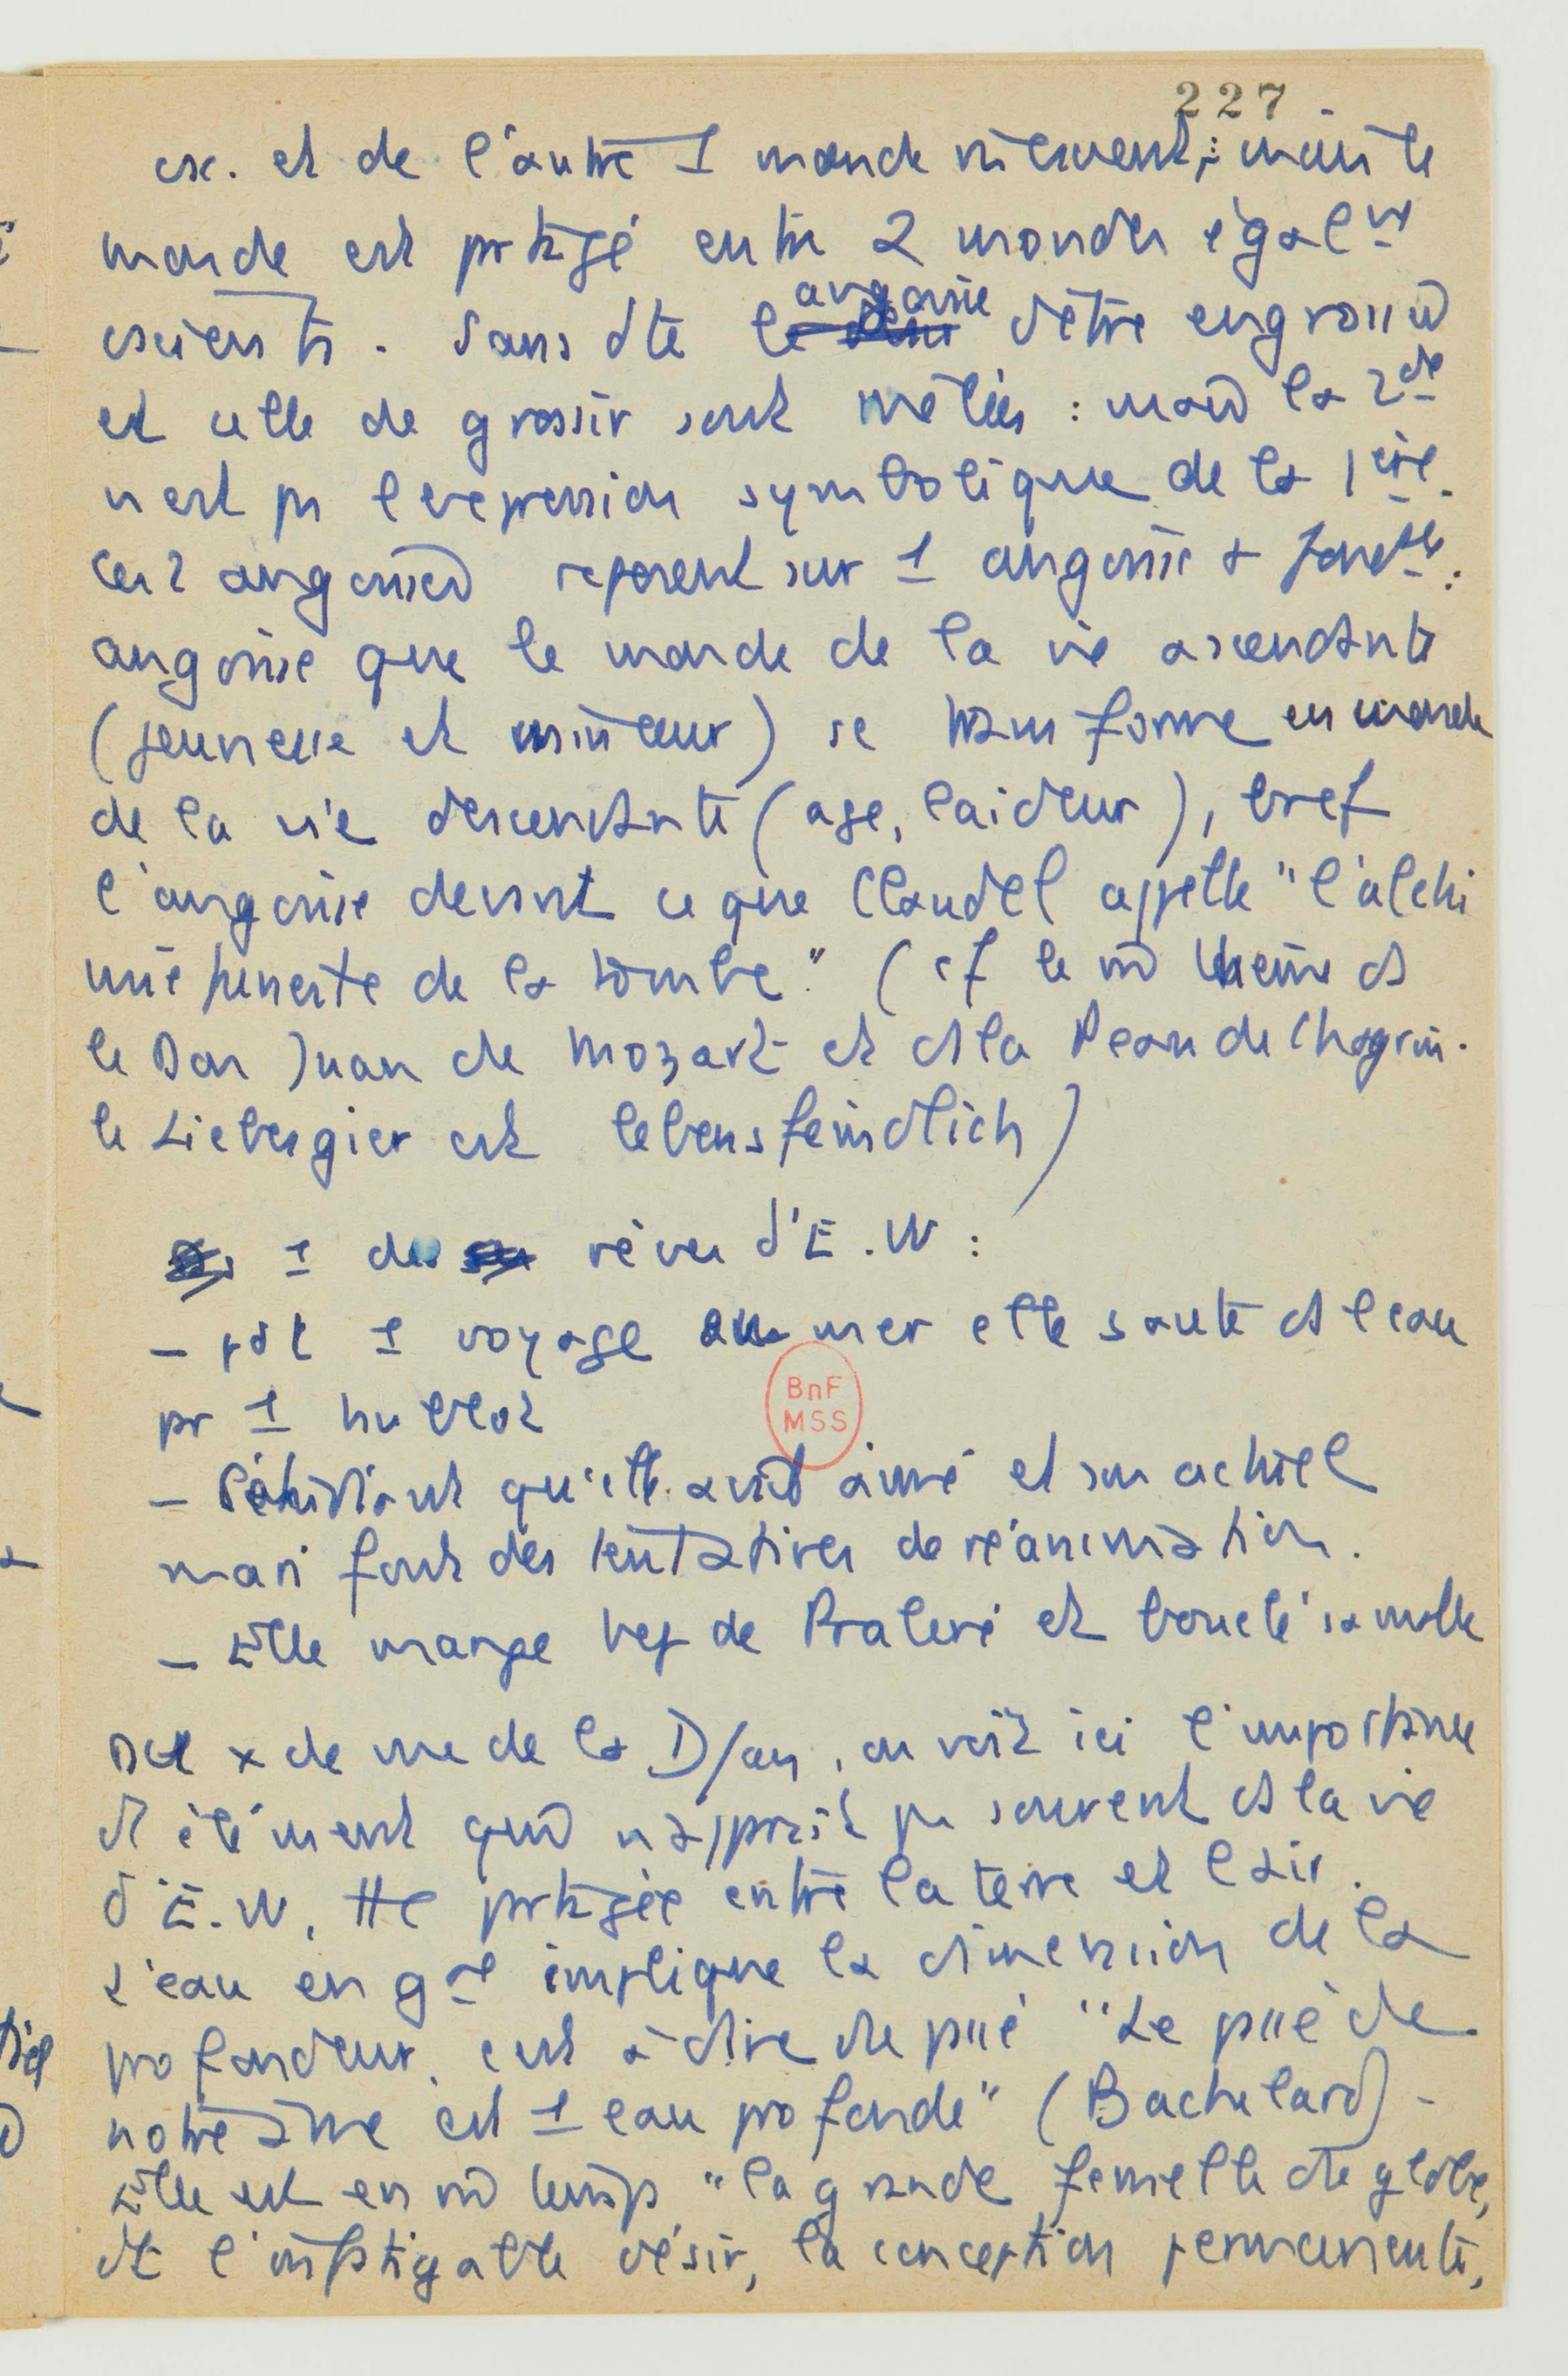 227
csc. et de l'autre 1 monde intervient ; mais le
monde est prtagé entre 2 mondes égalmt
cscients. Sans dte l angoisse d'être engrossée
et celle de grossir sont mêlées : mais la 2de
n'est ps l'expression symbolique de la 1ère.
Ces 2 angoisses reposent sur 1 angoisse + fondtle :
angoisse que le monde de la vie ascendante
(jeunesse et minceur) se transforme en monde
de la vie descendante (age, laideur), bref
l'angoisse devant ce que Claudel appelle "l'alchi
mie funeste de la tombe." (cf le m thème ds
le Don Juan de Mozart et ds la Peau de Chagrin.
le Liebesgier est lebensfeindlich)
1 des rêves d'E.W :
- pdt 1 voyage en mer elle saute ds l'eau
pr 1 hublot
- l'étudiant qu'elle avait aimé et son actuel
mari font des tentatives de réanimation.
- Elle mange bcp de Praliné et boucle sa malle
Du x de vue de la D/an, on voit ici l'importance
d' élément qui n'apparaît ps souvent ds la vie
d'E.W, tte prtagée entre la terre et l'air.
L'eau en gal implique la dimension de la
profondeur, c'est à dire du passé "Le passé de
notre âme est 1 eau profonde" (Bachelard) -
Elle est en m temps "la grande femelle du globe,
dt l'infatigable désir, la conception permanente,
BnF
MSS